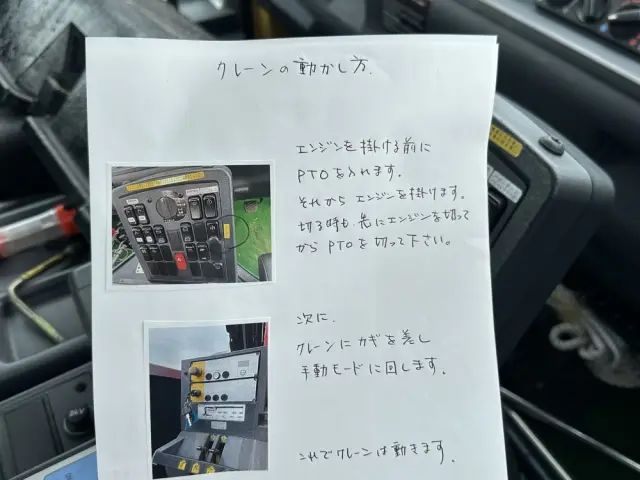 クレーンの動かし方.
エンジンを掛ける前に
PTOを入れます.
それから エンジンを掛けます.
切る時も 先にエンジンを切って
から PTOを切って下さい。
次に.
クレーンに カギを差し
手動モードに回します.
これでクレーンは動きます.